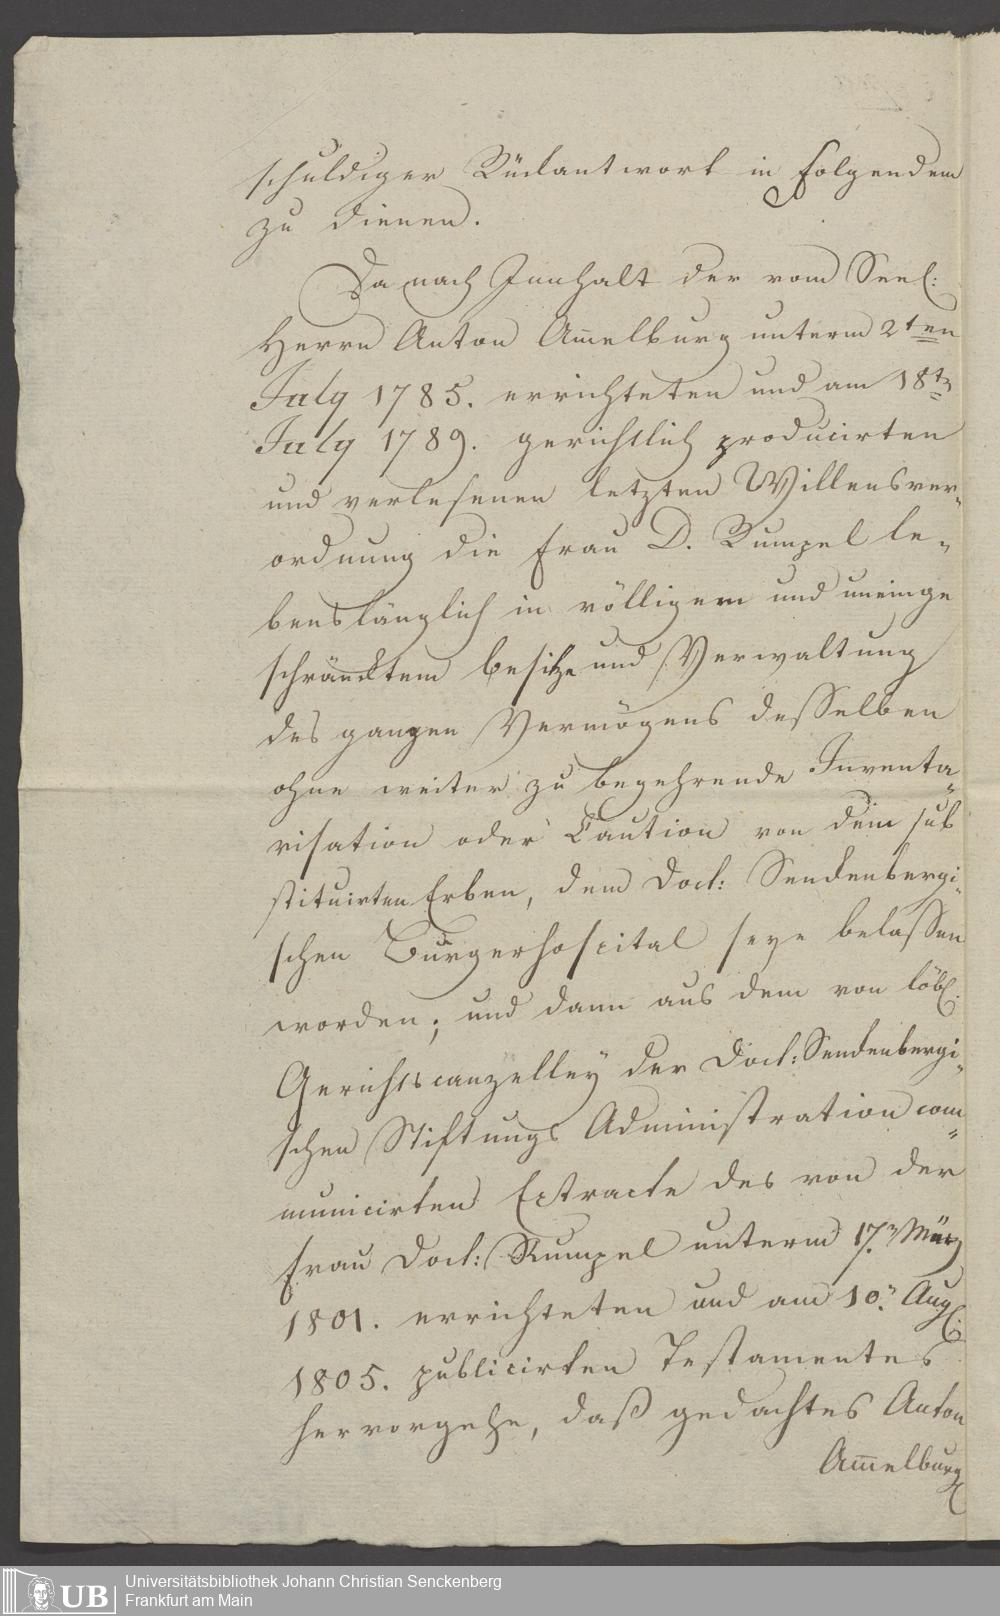 schuldiger Rückantwort in Folgendem
zu dienen.
Da nach Innhalt der vom Seel:
Herrn Anton Am̄elburg unterm 2ten
July 1785. errichteten und am 18tn
July 1789. gerichtlich producirten
und verlesenen letzten Willensver„
ordnung die Frau D. Rumpel le„
benslänglich in völligem und uneinge
schräncktem besitze und Verwaltung
des ganzen Vermögens desselben
ohne weiter zu begehrende Inventa„
risation oder Caution von dem sub
stituirten Erben, dem Doct: Senckenbergi„
schen Bürgerhospital seye belassen
worden; und dann aus dem von löbl.
Gerichtscanzelley der Doct: Senckenbergi„
schen Stiftungs Administration com„
municirten Extracte des von der
Frau Doct: Rumpel unterm 17.n März
1801. errichteten und am 10.n Aug.
1805. publicirten Testamentes
hervorgehe, daß gedachtes Anton
Am̄elburg
UB
Universitätsbibliothek Johann Christian Senckenberg
Frankfurt am Main